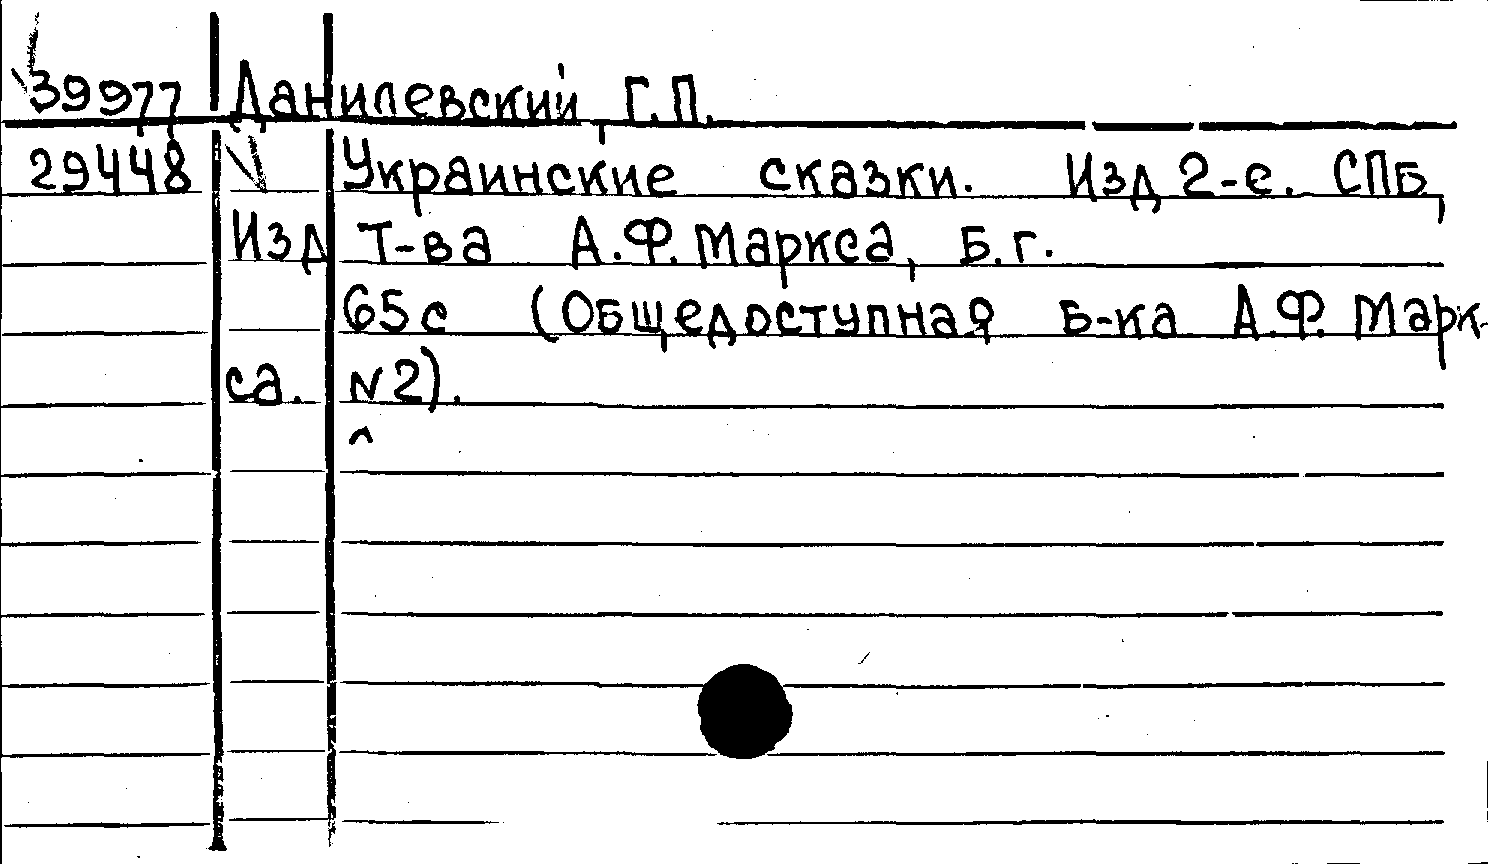 39977 Данилевский, Г.П.
29448 Украинские сказки. Изд 2-е. СПБ,
Изд Т-ва А.Ф. Маркса, Б.г.
65 с (Общедоступная Б-ка А.Ф. Марк-
са. N 2).